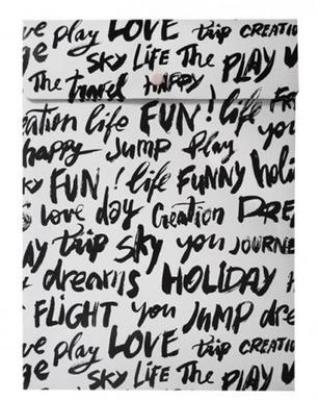 ve play LOVE trip CREATIO
ge SKY LiFE The PLAY
The travel HAPPY
eation life FUN! life FR
happy JUMP Play you
KY FUN! life FUNNY holi
love day Creation DRE
AY trip SKY you JOURNE
dreams HOLIDAY
FLIGHT you JUMP dre
ve play LOVE trip CREATIO
ge SKY LiFE The PLAY